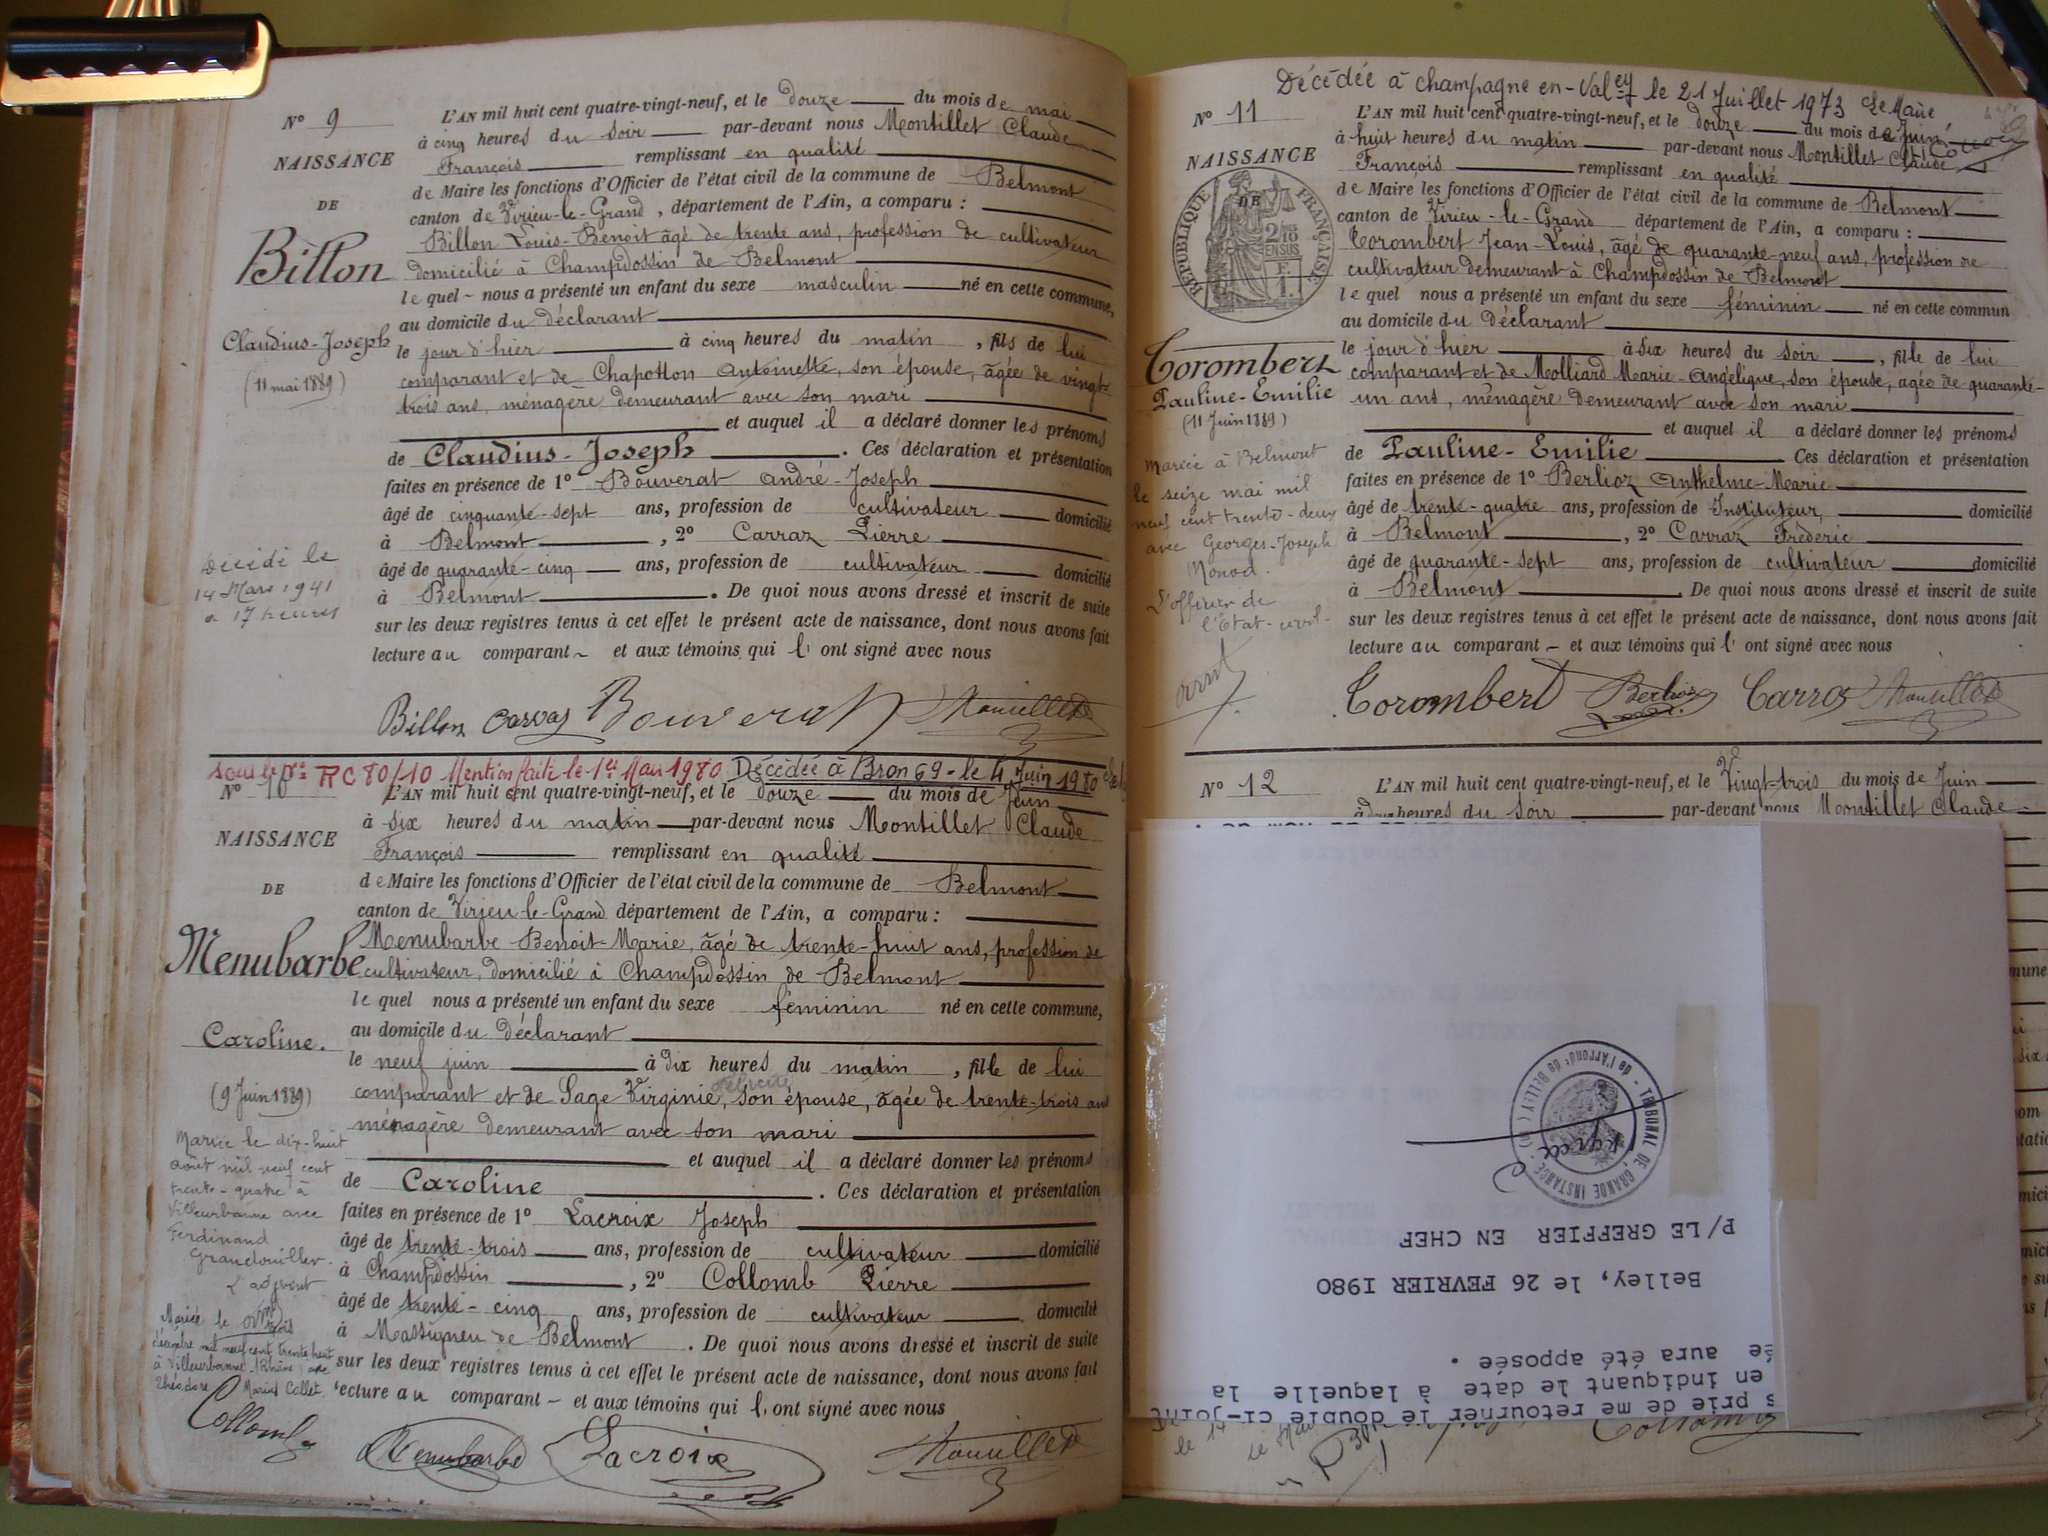 N° 9
NAISSANCE
DE
Billon
Claudius-Joseph
(11 mai 1889)
Décédé le
14 Mars 1941
a 17 heures
L'AN mil huit cent quatre-vingt-neuf, et le douze du mois de mai
à cinq heures du soir par-devant nous Montillet Claude
François remplissant en qualité
de Maire les fonctions d'Officier de l'état civil de la commune de Belmont
canton de Virieu-le-Grand, département de l'Ain, a comparu :
Billon Louis-Benoit âgé de trente ans, profession de cultivateur
domicilié à Champdossin de Belmont
lequel nous a présenté un enfant du sexe masculin né en cette commune,
au domicile du déclarant
le jour d'hier à cinq heures du matin, fils de lui
comparant et de Chapotton Antoinette, son épouse, âgée de vingt-
trois ans, ménagère demeurant avec son mari
et auquel il a déclaré donner les prénoms
de Claudius-Joseph. Ces déclaration et présentation
faites en présence de 1° Bouverat André-Joseph
âgé de cinquante-sept ans, profession de cultivateur domicilié
à Belmont, 2° Carraz Pierre
âgé de quarante-cinq ans, profession de cultivateur domicilié
à Belmont. De quoi nous avons dressé et inscrit de suite
sur les deux registres tenus à cet effet le présent acte de naissance, dont nous avons fait
lecture au comparant et aux témoins qui l'ont signé avec nous
Billon Carraz Bouverat Montillet
sous le N° RC 80/10 Mention faite le 1er Mars 1980 Décédée à Bron 69 - le 4 Juin 1980
N° 10
NAISSANCE
DE
Menubarbe
Caroline.
(9 Juin 1889)
Mariée le dix-huit
août mil neuf cent
trente-quatre à
Villeurbanne avec
Ferdinand
L'adjoint
Mariée le trois
décembre mil neuf cent trente huit
à Villeurbanne (Rhône) avec
Théodore Marius Collet
L'AN mil huit cent quatre-vingt-neuf, et le douze du mois de Juin
à six heures du matin par-devant nous Montillet Claude
François remplissant en qualité
de Maire les fonctions d'Officier de l'état civil de la commune de Belmont
canton de Virieu-le-Grand département de l'Ain, a comparu :
Menubarbe Benoit-Marie, âgé de trente-huit ans, profession de
cultivateur, domicilié à Champdossin de Belmont
lequel nous a présenté un enfant du sexe féminin né en cette commune,
au domicile du déclarant
le neuf juin à dix heures du matin, fille de lui
comparant et de Sage Virginie Félicité, son épouse, âgée de trente-trois ans
ménagère demeurant avec son mari
et auquel il a déclaré donner les prénoms
de Caroline. Ces déclaration et présentation
faites en présence de 1° Lacroix Joseph
âgé de trente-trois ans, profession de cultivateur domicilié
à Champdossin, 2° Collomb Pierre
âgé de trente-cinq ans, profession de cultivateur domicilié
à Massigneu de Belmont. De quoi nous avons dressé et inscrit de suite
sur les deux registres tenus à cet effet le présent acte de naissance, dont nous avons fait
lecture au comparant et aux témoins qui l'ont signé avec nous
Collomb Menubarbe Lacroix Montillet
Décédée à Champagne-en-Valey le 21 Juillet 1973 Le Maire,
N° 11
NAISSANCE
DE
RÉPUBLIQUE FRANÇAISE
2/10 EN SUS
F. 1.
Torombert
Pauline-Emilie
(11 Juin 1889)
Mariée à Belmont
le seize mai mil
neuf cent trente-deux
avec Georges-Joseph
Monod.
L'officier de
l'Etat-civil.
L'AN mil huit cent quatre-vingt-neuf, et le douze du mois de Juin
à huit heures du matin par-devant nous Montillet Claude
François remplissant en qualité
de Maire les fonctions d'Officier de l'état civil de la commune de Belmont
canton de Virieu-le-Grand département de l'Ain, a comparu :
Torombert Jean-Louis, âgé de quarante-neuf ans, profession de
cultivateur demeurant à Champdossin de Belmont
lequel nous a présenté un enfant du sexe féminin né en cette commun
au domicile du déclarant
le jour d'hier à six heures du soir, fille de lui
comparant et de Molliard Marie-Angélique, son épouse, agée de quarante-
un ans, ménagère demeurant avec son mari
et auquel il a déclaré donner les prénoms
de Pauline-Emilie Ces déclaration et présentation
faites en présence de 1° Berlioz Anthelme-Marie
âgé de trente-quatre ans, profession de Instituteur, domicilié
à Belmont, 2° Carraz Frédéric
âgé de quarante-sept ans, profession de cultivateur domicilié
à Belmont. De quoi nous avons dressé et inscrit de suite
sur les deux registres tenus à cet effet le présent acte de naissance, dont nous avons fait
lecture au comparant et aux témoins qui l'ont signé avec nous
Torombert Berlioz Carraz Montillet
N° 12
L'AN mil huit cent quatre-vingt-neuf, et le Vingt-trois du mois de Juin
heures du soir par-devant nous Montillet Claude
s prié de me retourner le double ci-joint
en indiquant le date à laquelle la
ée aura été apposée.
Belley, le 26 FEVRIER 1980
P/LE GREFFIER EN CHEF
TRIBUNAL DE GRANDE INSTANCE
de l'Arrondt de BELLEY